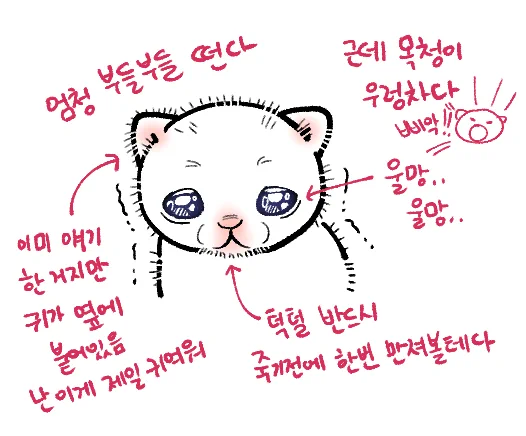 엄청 부들부들 떤다
근데 목청이
우렁차다
삐약!!
울망..
울망..
이미 얘기
한 거지만
귀가 옆에
붙어있음
난 이게 제일 귀여워
턱털 반드시
죽기전에 한번 만져볼테다